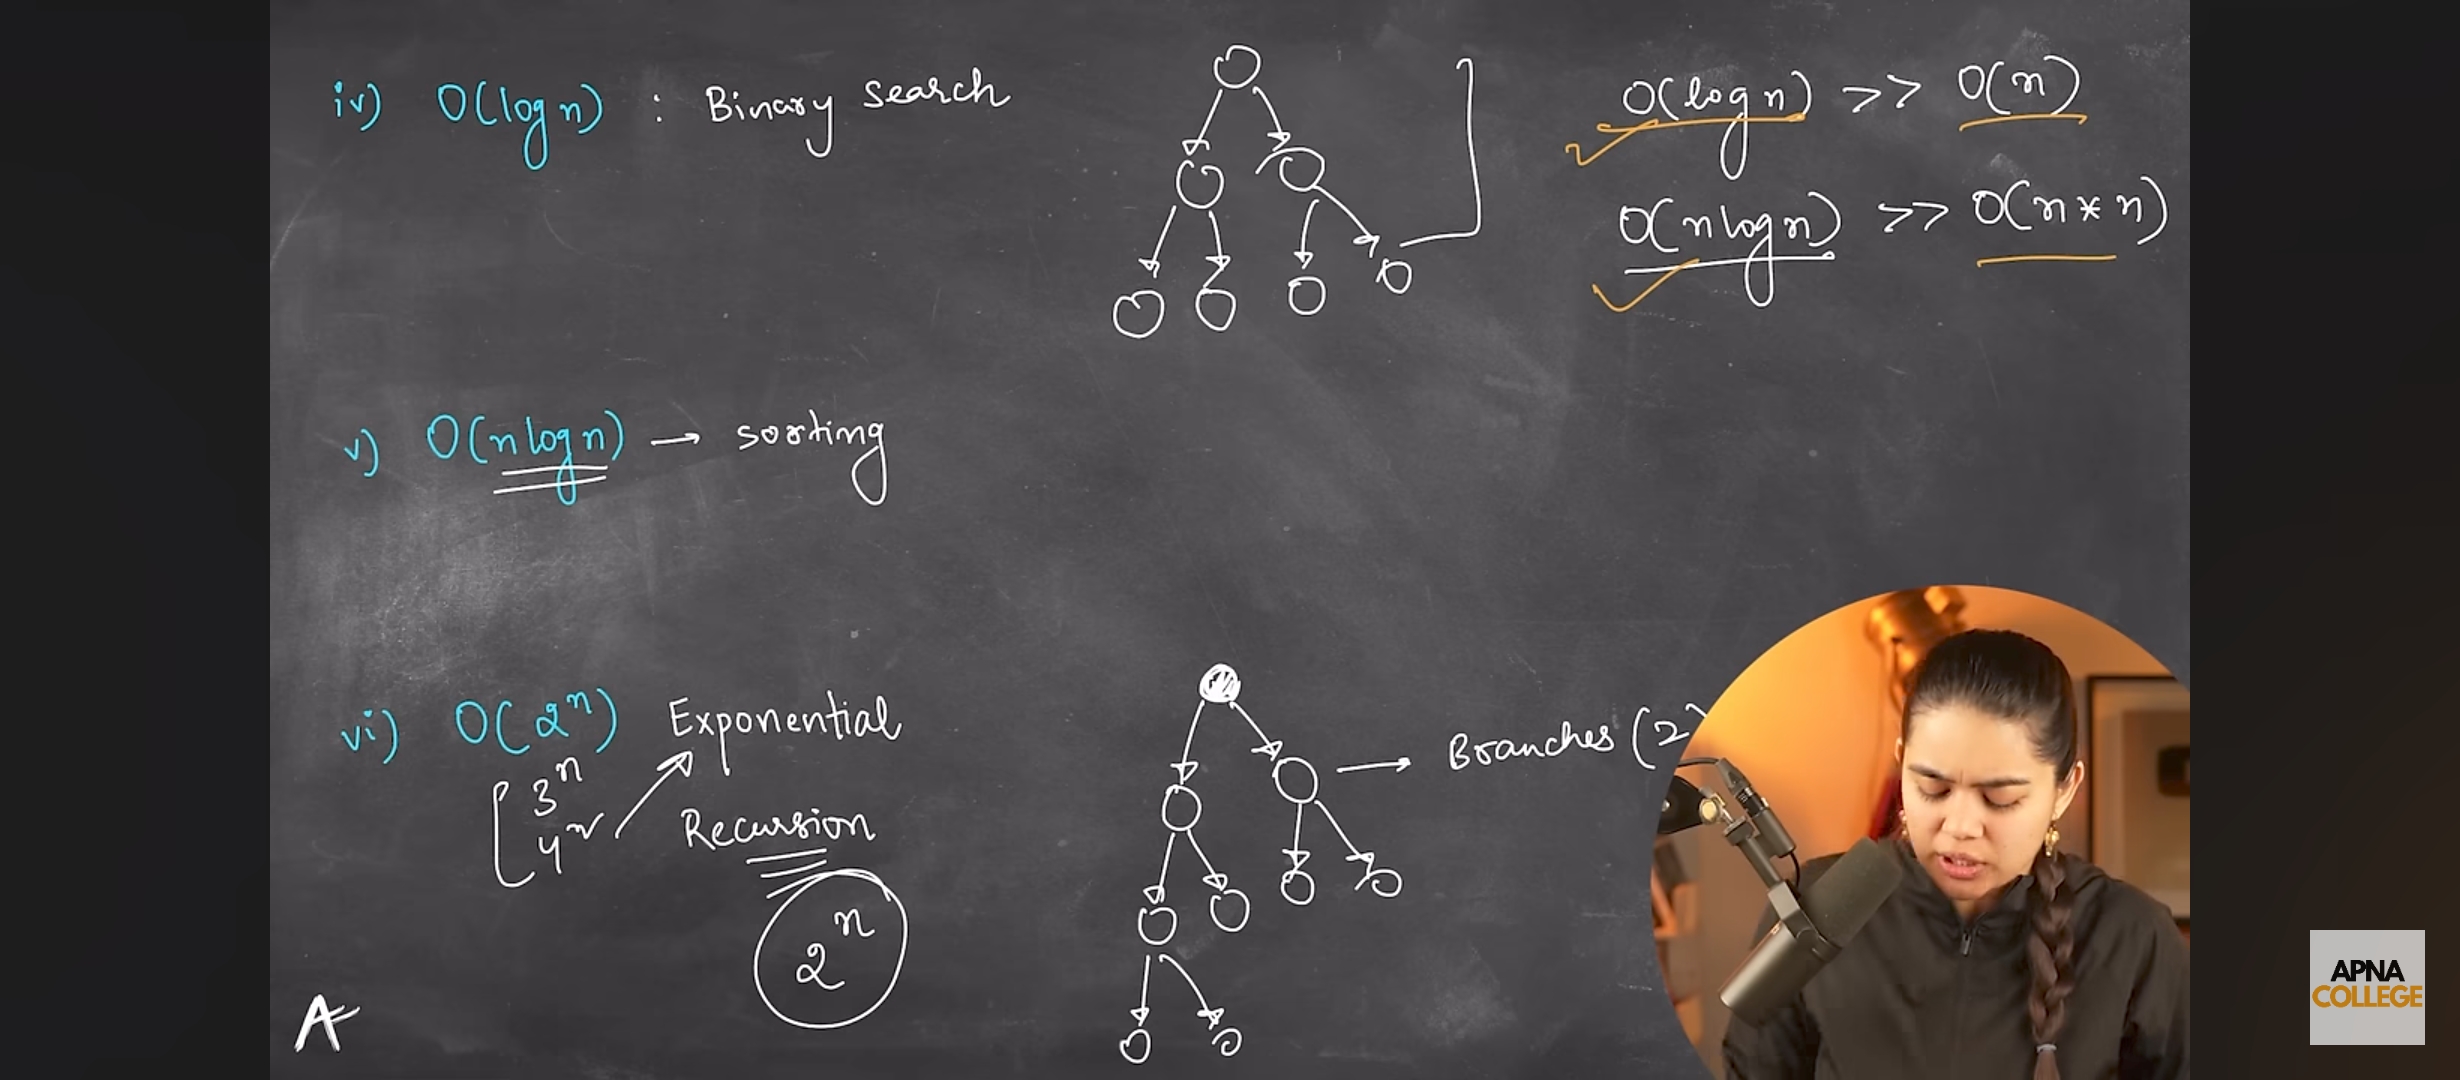 iv) O(log n) : Binary search
O(log n) >> O(n)
O(n log n) >> O(n * n)
v) O(n log n) → sorting
vi) O(2ⁿ) Exponential
3ⁿ
4ⁿ
Recursion
2ⁿ
→ Branches (2
A
APNA
COLLEGE